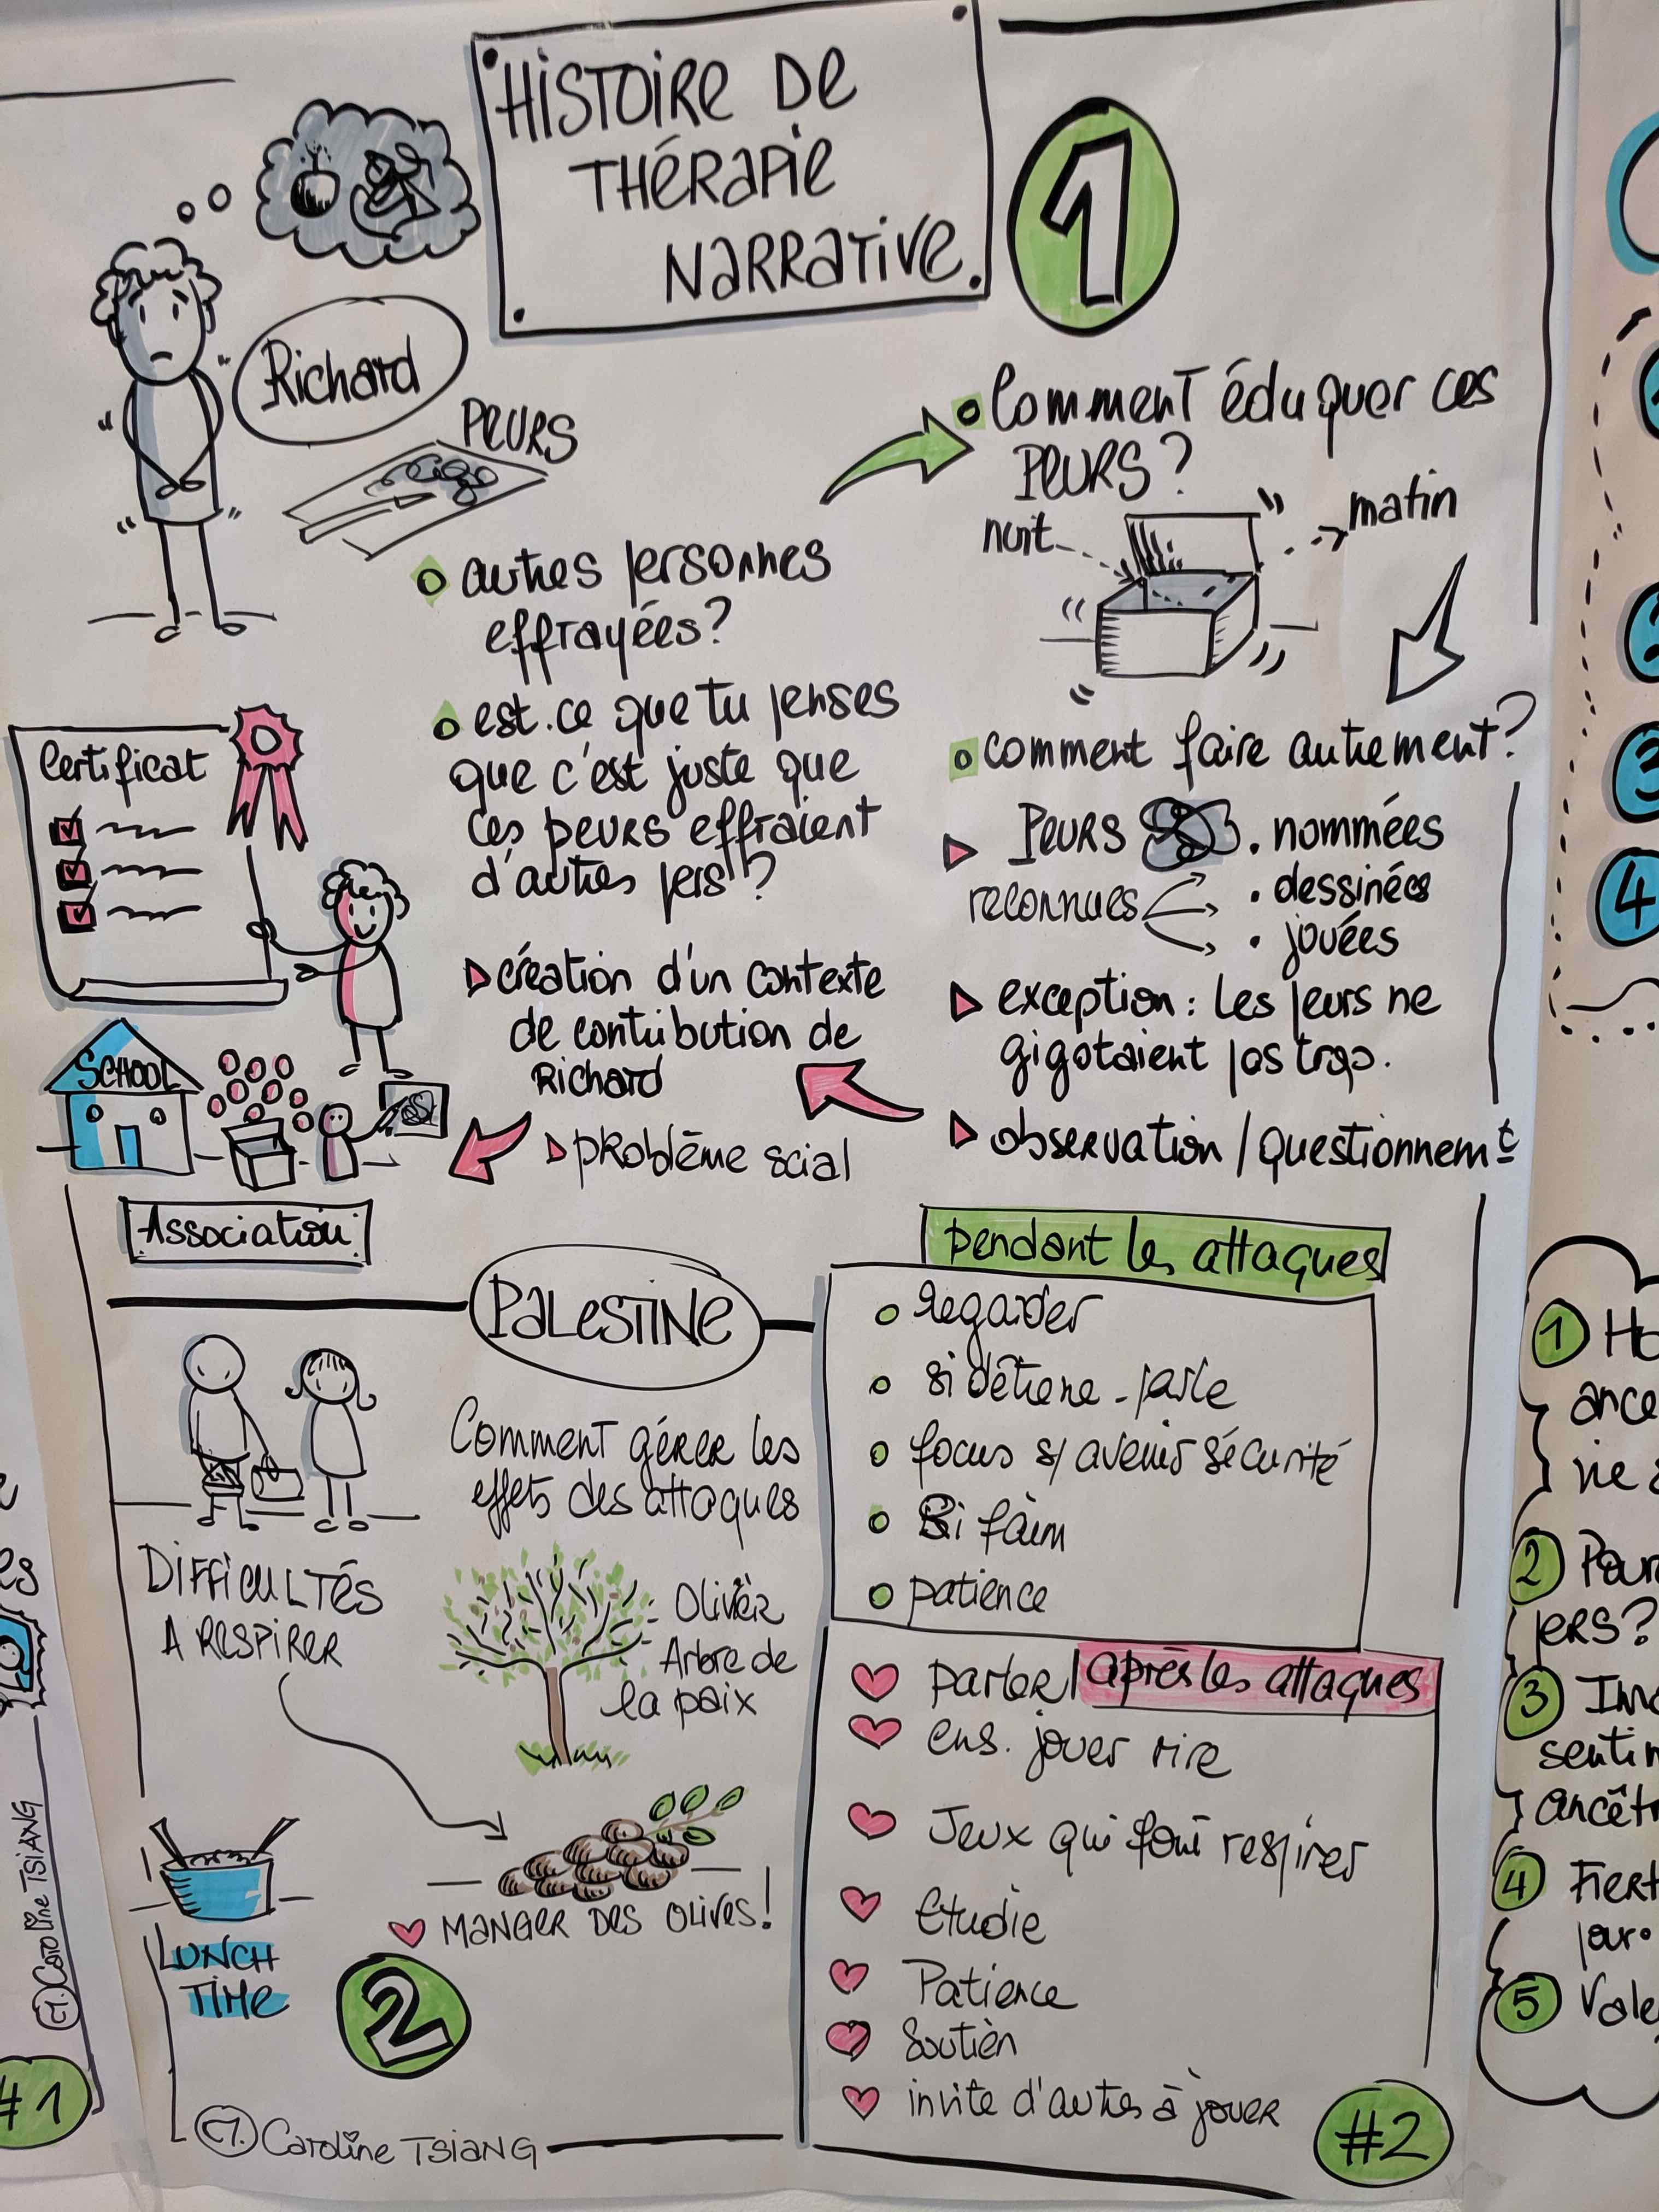 HISTOIRE DE
THÉRAPIE
NARRATIVE
1
Richard
PEURS
autres personnes
effrayées?
est-ce que tu penses
que c'est juste que
ces peurs effraient
d'autres pers?
création d'un contexte
de contribution de
Richard
problème scial
Comment éduquer ces
PEURS?
nuit
matin
comment faire autrement?
PEURS
reconnues
. nommées
. dessinées
. jouées
exception : les peurs ne
gigotaient pas trop.
observation / questionnemt
Certificat
SCHOOL
Association
PALESTINE
Comment gérer les
effets des attaques
DIFFICULTÉS
A RESPIRER
Olivier
Arbre de
la paix
MANGER DES OLIVES!
LUNCH
TIME
2
Caroline TSIANG
pendant les attaques
Regarder
si détiene - parle
focus s/ avenir sécurité
Si faim
patience
après les attaques
parler
ens. jouer rire
Jeux qui font respirer
Etudie
Patience
Soutien
invite d'autres à jouer
#2
Caroline TSIANG
#1
2
3
4
1 Ho
ance
vie
2 Pour
pers?
3 Ima
sentim
ancêtr
4 Fiert
pour
5 Vale